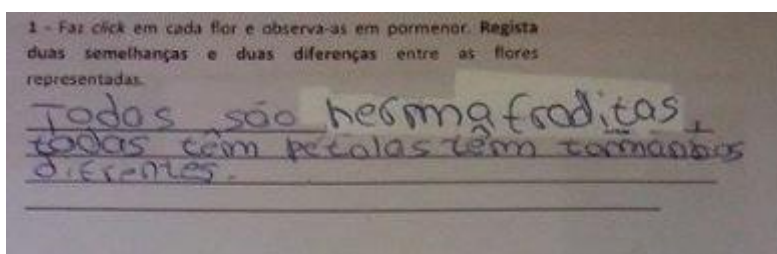 1 - Faz click em cada flor e observa-as em pormenor. Regista
duas semelhanças e duas diferenças entre as flores
representadas.
Todas são hermafroditas,
todas têm pétalas têm tormanhos
diferentes.